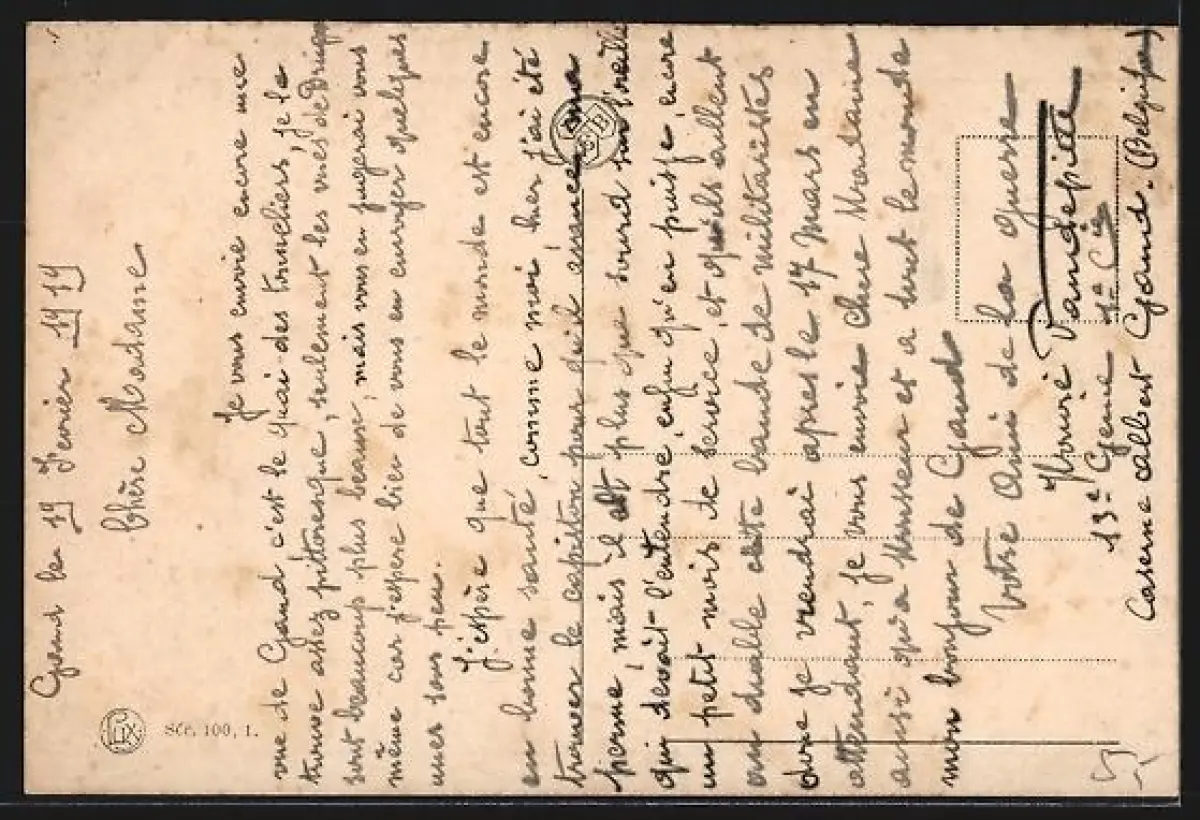 Gand le 19 Fevrier 1919
Chère Madame
Je vous envoie encore une
vue de Gand c'est le quai des tonneliers, je la
trouve assez pittoresque, seulement les vues de
sont beaucoup plus beaux, mais vous en jugerai vous
même car j'espere bien de vous en envoyer quelques
unes sous peu.
J'éspère que tout le monde est encore
en bonne santé, comme moi hier j'ai été
trouver le capitain pour qu'il avance ma
perme, mais il est plus que sourd sur l'oreille
qui devait l'entendre, enfin qu'en puisse, encore
un petit mois de service, et qu'ils aillent
au diable cette bande de militaristes
donc je viendrai apres le 17 Mars en
attendant, je vous envoie Chere Madame
ainsi qu'a Monsieur et a tout le monde
mon bonjour de Gand
Votre Ami de la guerre
Henri Vandepitte
13e Genie 1e Cie
Caserne Albert Gand. (Belgique)
Sér. 100, 1.